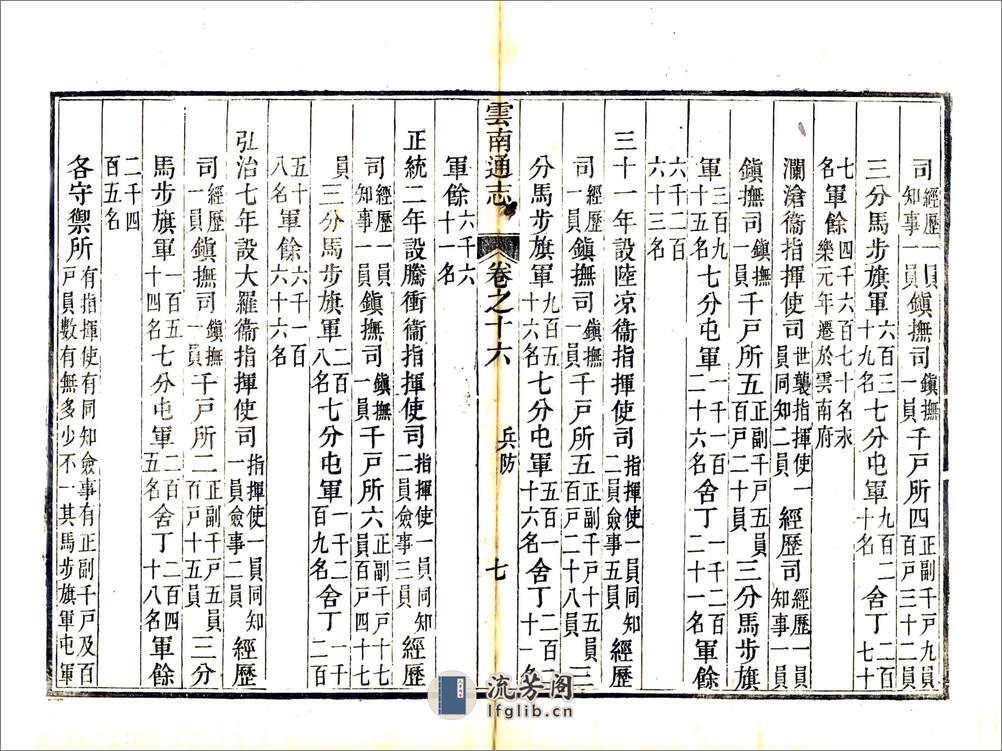 司經歷一員知事一員鎮撫司鎮撫一員千戸所四正副千戸九員百戸三十二員
三分馬步旗軍六百三十九名七分屯軍九百二十名舍丁二百七十
七名軍餘四千六百七十名永樂元年遷於雲南府
瀾滄衞指揮使司世襲指揮使一員同知二員經歷司經歷一員知事一員
鎮撫司鎮撫一員千戸所五正副千戸五員百戸二十員三分馬步旗
軍三百九十五名七分屯軍一千一百二十六名舍丁一千二百二十一名軍餘
六千二百六十三名
三十一年設陸凉衞指揮使司指揮使一員同知二員僉事五員經歷
司經歷一員鎮撫司鎮撫一員千戸所五正副千戸十五員百戸二十八員三
分馬步旗軍九百五十六名七分屯軍五百一十六名舍丁二百二十一名
雲南通志 卷之十六 兵防 七
軍餘六千六十一名
正統二年設騰衝衞指揮使司指揮使一員同知二員僉事三員經歷
司經歷一員知事一員鎮撫司鎮撫一員千戸所六正副千戸十七員百戸四十七
員三分馬步旗軍二百八名七分屯軍一千二百九名舍丁一千二百
五十八名軍餘一千一百六十六名
弘治七年設大羅衞指揮使司指揮使一員同知一員僉事二員經歷
司經歷一員鎮撫司鎮撫一員千戸所二正副千戸五員百戸十五員三分
馬步旗軍一百五十四名七分屯軍二百二十五名舍丁二百四十八名軍餘
二千四百五名
各守禦所有指揮使有同知僉事有正副千戸及百戸員數有無多少不一其馬步旗軍屯軍
流芳阁
lfglib.cn